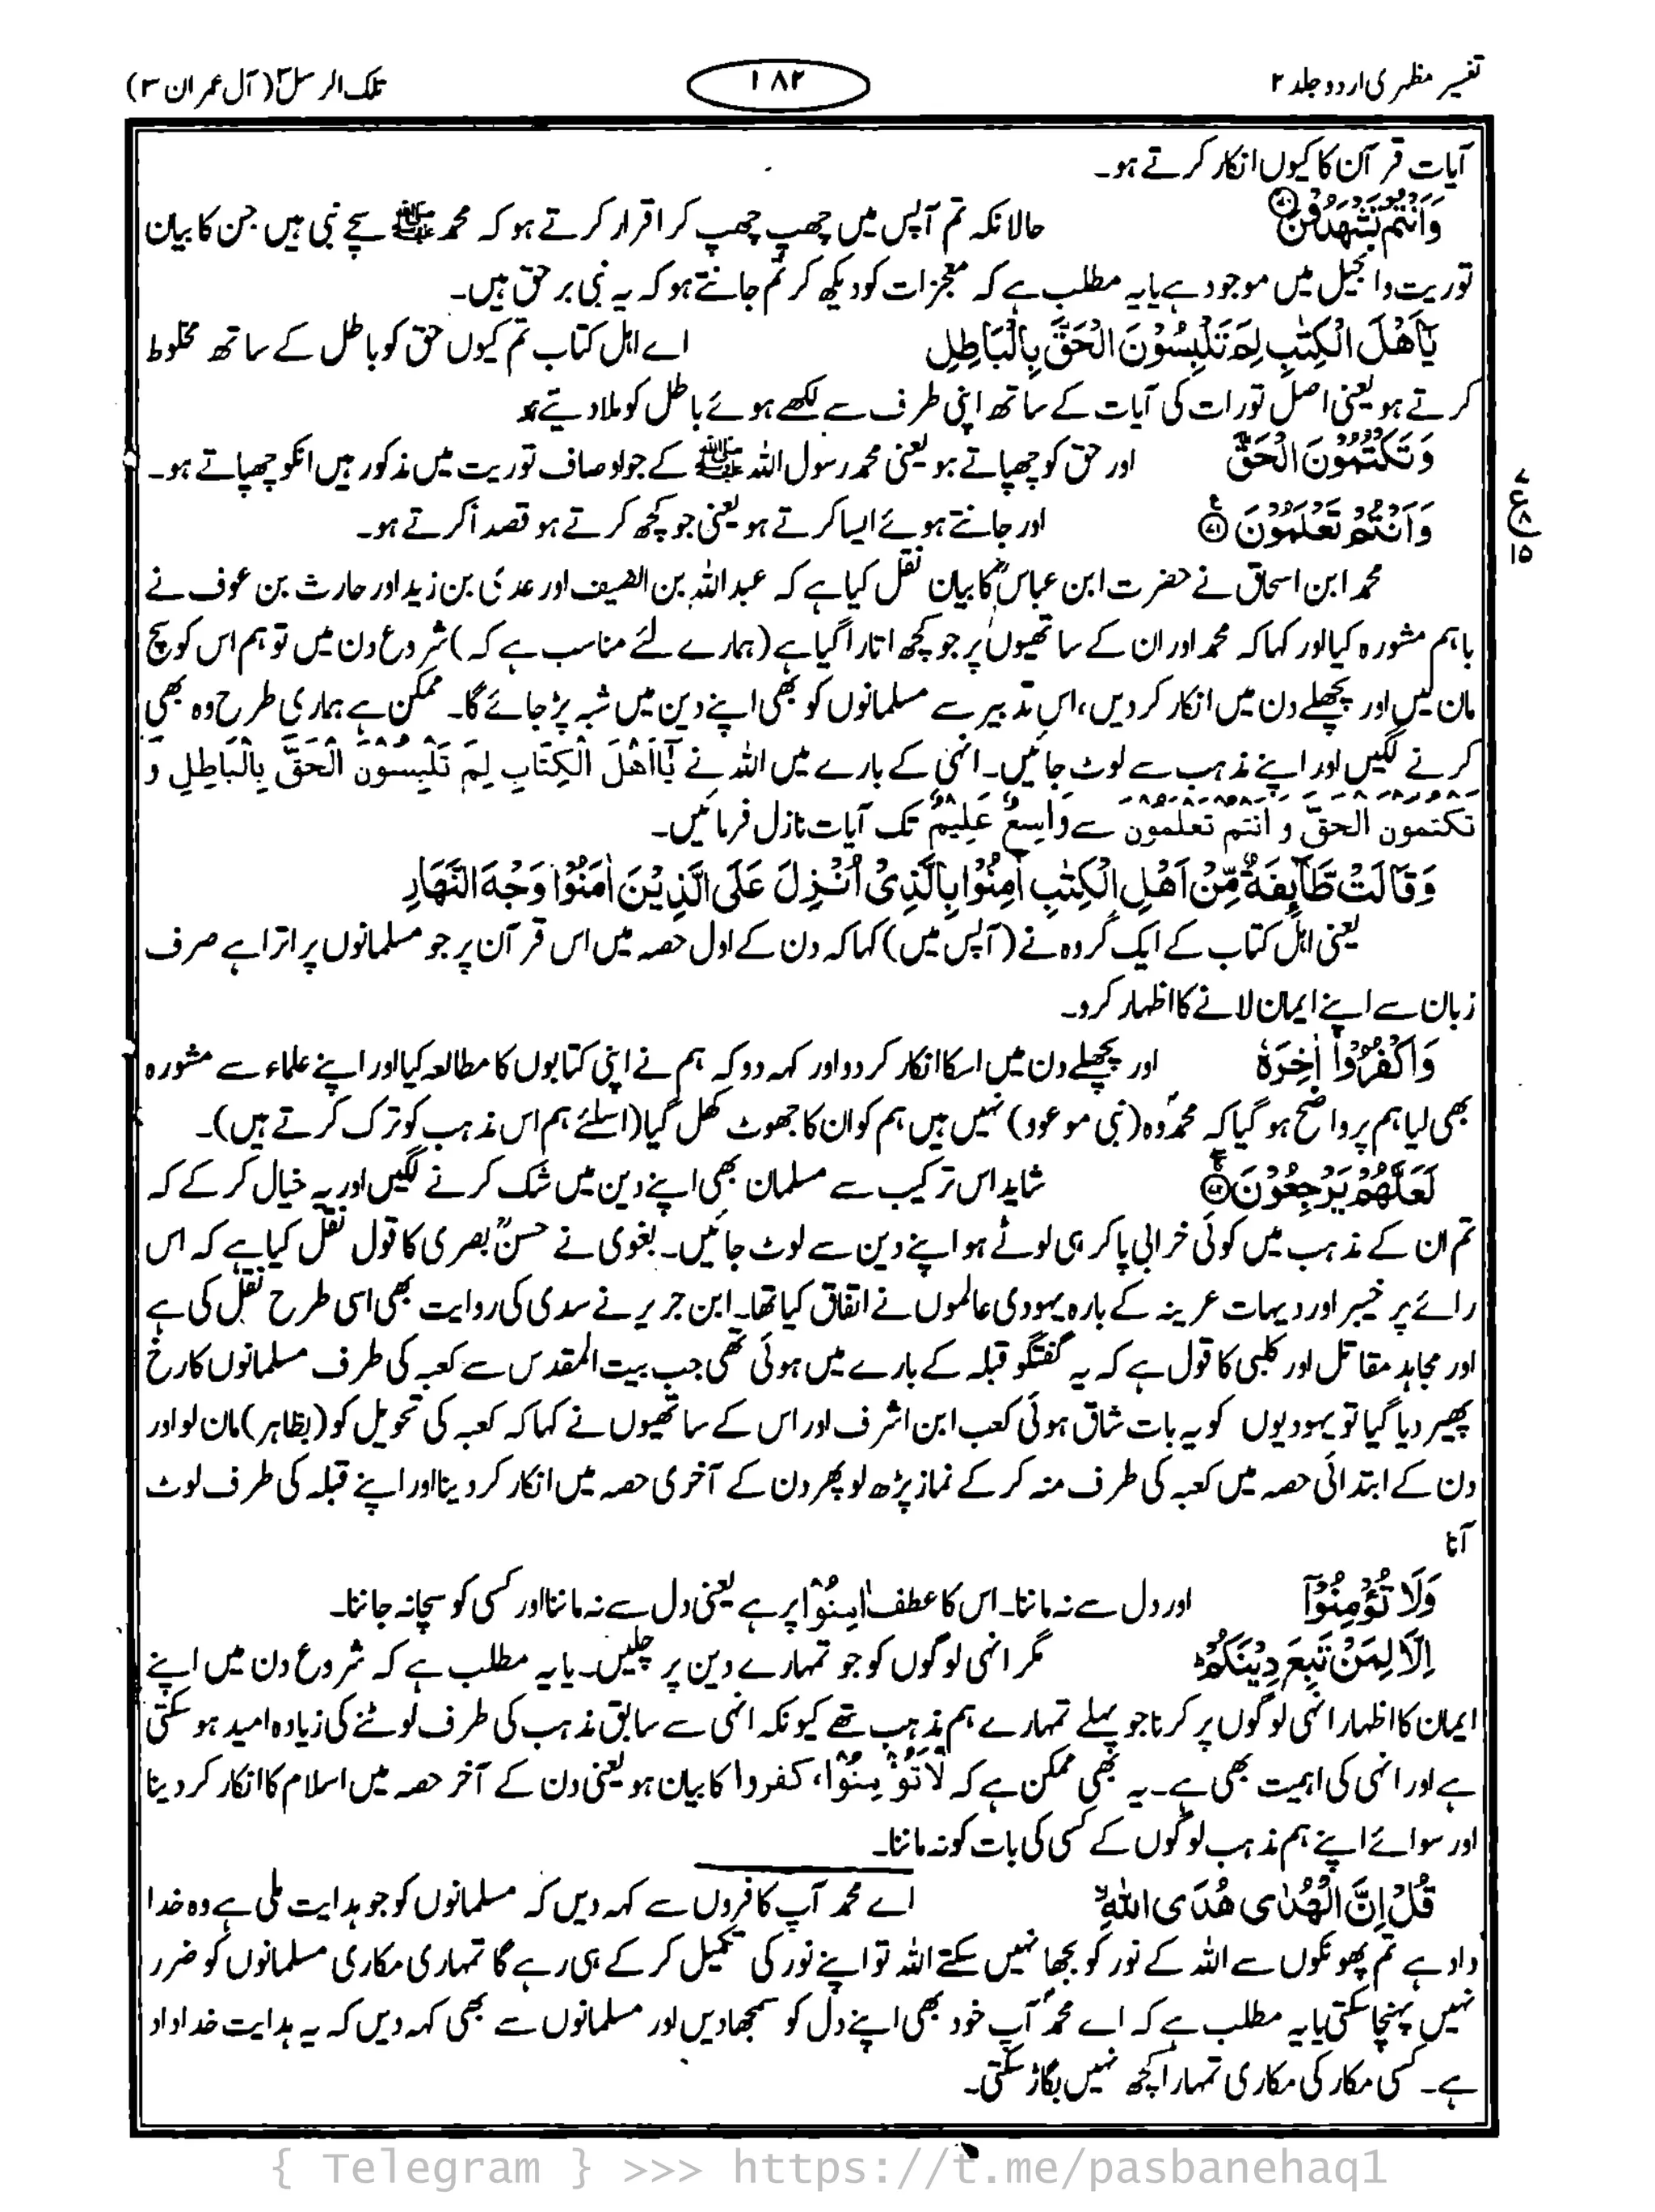 تفسیر مظہری اردو جلد ۲
۱۸۲
تلک الرسل ۳ (آل عمران ۳)
آیات قرآن کا کیوں انکار کرتے ہو۔
وَاَنْتُمْ تَشْهَدُوْنَ ۝۷۰ حالانکہ تم آپس میں چھپ چھپ کر اقرار کرتے ہو کہ محمد ﷺ سچے نبی ہیں جن کا بیان
توریت و انجیل میں موجود ہے یا یہ مطلب ہے کہ معجزات کو دیکھ کر تم جانتے ہو کہ یہ نبی بر حق ہیں۔
يٰٓاَهْلَ الْكِتٰبِ لِمَ تَلْبِسُوْنَ الْحَقَّ بِالْبَاطِلِ اے اہل کتاب تم کیوں حق کو باطل کے ساتھ مخلوط
کرتے ہو یعنی اصل تورات کی آیات کے ساتھ اپنی طرف سے لکھے ہوئے باطل کو ملا دیتے ہو
وَتَكْتُمُوْنَ الْحَقَّ اور حق کو چھپاتے ہو یعنی محمد رسول اللہ ﷺ کے جو اوصاف توریت میں مذکور ہیں انکو چھپاتے ہو۔
وَاَنْتُمْ تَعْلَمُوْنَ ۝۷۱ اور جانتے ہوئے ایسا کرتے ہو یعنی جو کچھ کرتے ہو قصداً کرتے ہو۔
ع ۸ ۱۵
محمد ابن اسحاق نے حضرت ابن عباسؓ کا بیان نقل کیا ہے کہ عبداللہ بن الضیف اور عدی بن زید اور حارث بن عوف نے
باہم مشورہ کیا اور کہا کہ محمد اور ان کے ساتھیوں پر جو کچھ اتارا گیا ہے (ہمارے لئے مناسب ہے کہ) شروع دن میں تو ہم اس کو سچ
مان لیں اور پچھلے دن میں انکار کر دیں، اس تدبیر سے مسلمانوں کو بھی اپنے دین میں شبہ پڑ جائے گا۔ ممکن ہے ہماری طرح وہ بھی
کرنے لگیں اور اپنے مذہب سے لوٹ جائیں۔ انہی کے بارے میں اللہ نے يَآ اَهْلَ الْكِتَابِ لِمَ تَلْبِسُوْنَ الْحَقَّ بِالْبَاطِلِ وَ
تَكْتُمُوْنَ الْحَقَّ وَ اَنْتُمْ تَعْلَمُوْنَ سے وَاسِعٌ عَلِيْمٌ تک آیات نازل فرمائیں۔
وَقَالَتْ طَّآىِٕفَةٌ مِّنْ اَهْلِ الْكِتٰبِ اٰمِنُوْا بِالَّذِيْٓ اُنْزِلَ عَلَى الَّذِيْنَ اٰمَنُوْا وَجْهَ النَّهَارِ
یعنی اہل کتاب کے ایک گروہ نے (آپس میں) کہا کہ دن کے اول حصہ میں اس قرآن پر جو مسلمانوں پر اترا ہے صرف
زبان سے اپنے ایمان لانے کا اظہار کرو۔
وَاكْفُرُوْٓا اٰخِرَهٗ اور پچھلے دن میں اسکا انکار کر دو اور کہہ دو کہ ہم نے اپنی کتابوں کا مطالعہ کیا اور اپنے علماء سے مشورہ
بھی لیا ہم پر واضح ہو گیا کہ محمدؐ وہ (نبی موعود) نہیں ہیں ہم کو ان کا جھوٹ کھل گیا (اسلئے ہم اس مذہب کو ترک کرتے ہیں)۔
لَعَلَّهُمْ يَرْجِعُوْنَ ۝۷۲ شاید اس ترکیب سے مسلمان بھی اپنے دین میں شک کرنے لگیں اور یہ خیال کر کے کہ
تم ان کے مذہب میں کوئی خرابی پا کر ہی لوٹے ہو اپنے دین سے لوٹ جائیں۔ بغوی نے حسنؒ بصری کا قول نقل کیا ہے کہ اس
رائے پر خیبر اور دیہات عرینہ کے بارہ یہودی عالموں نے اتفاق کیا تھا۔ ابن جریر نے سدی کی روایت بھی اسی طرح نقل کی ہے
اور مجاہد مقاتل اور کلبی کا قول ہے کہ یہ گفتگو قبلہ کے بارے میں ہوئی تھی جب بیت المقدس سے کعبہ کی طرف مسلمانوں کا رخ
پھیر دیا گیا تو یہودیوں کو یہ بات شاق ہوئی کعب ابن اشرف اور اس کے ساتھیوں نے کہا کہ کعبہ کی تحویل کو (بظاہر) مان لو اور
دن کے ابتدائی حصہ میں کعبہ کی طرف منہ کر کے نماز پڑھ لو پھر دن کے آخری حصہ میں انکار کر دینا اور اپنے قبلہ کی طرف لوٹ
آنا
وَلَا تُؤْمِنُوْٓا اور دل سے نہ ماننا۔ اس کا عطف اٰمِنُوْا پر ہے یعنی دل سے نہ ماننا اور کسی کو سچا نہ جاننا۔
اِلَّا لِمَنْ تَبِعَ دِيْنَكُمْ مگر انہی لوگوں کو جو تمہارے دین پر چلیں۔ یا یہ مطلب ہے کہ شروع دن میں اپنے
ایمان کا اظہار انہی لوگوں پر کرنا جو پہلے تمہارے ہم مذہب تھے کیونکہ انہی سے سابق مذہب کی طرف لوٹنے کی زیادہ امید ہو سکتی
ہے اور انہی کی اہمیت بھی ہے۔ یہ بھی ممکن ہے کہ لَا تُؤْمِنُوْا، کفروا کا بیان ہو یعنی دن کے آخر حصہ میں اسلام کا انکار کر دینا
اور سوائے اپنے ہم مذہب لوگوں کے کسی کی بات کو نہ ماننا۔
قُلْ اِنَّ الْهُدٰى هُدَى اللّٰهِ اے محمد آپ کافروں سے کہہ دیں کہ مسلمانوں کو جو ہدایت ملی ہے وہ خدا
داد ہے تم پھونکوں سے اللہ کے نور کو بجھا نہیں سکتے اللہ تو اپنے نور کی تکمیل کر کے ہی رہے گا تمہاری مکاری مسلمانوں کو ضرر
نہیں پہنچا سکتی یا یہ مطلب ہے کہ اے محمدؐ آپ خود بھی اپنے دل کو سمجھا دیں اور مسلمانوں سے بھی کہہ دیں کہ یہ ہدایت خداداد
ہے۔ کسی مکار کی مکاری تمہارا کچھ نہیں بگاڑ سکتی۔
{ Telegram } >>> https://t.me/pasbanehaq1